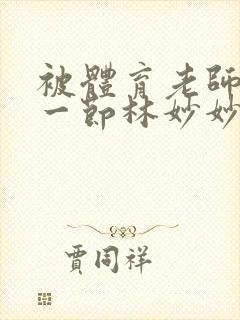 被體育老師
一節林妙妙
賈同祥